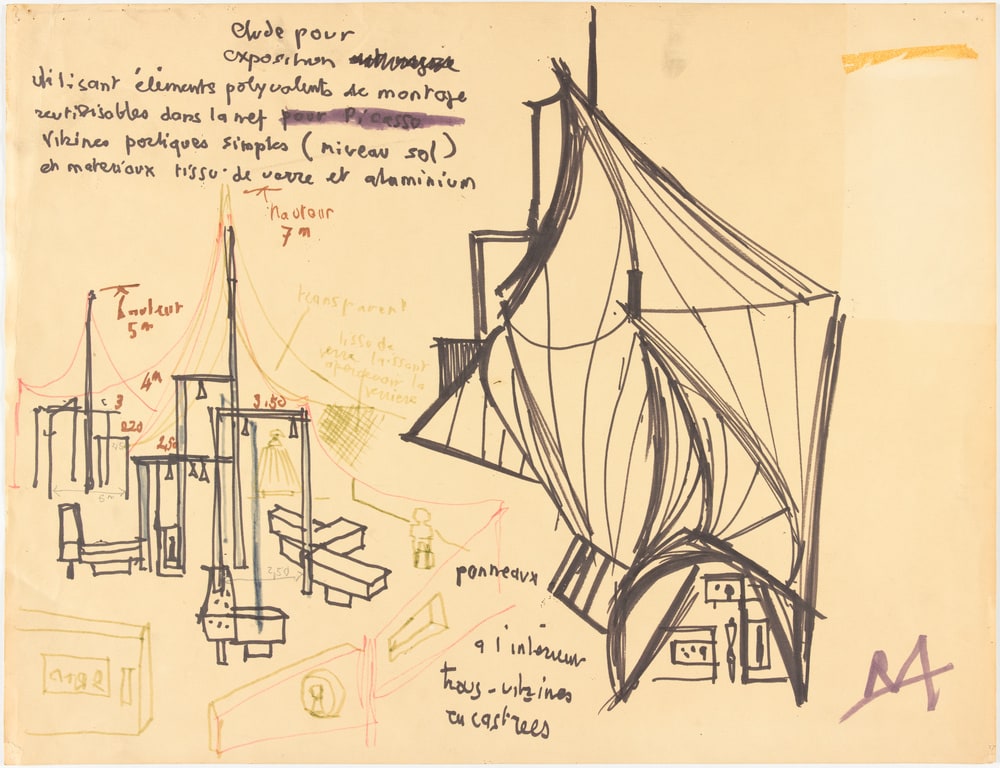 etude pour
exposition
utilisant éléments polyvalents de montage
réutilisables dans la nef pour Picasso
vitrines portiques simples (niveau sol)
en materiaux tissu de verre et aluminium
hauteur
7 m
hauteur
5 m
transparent
tissu de
verre laissant
apercevoir la
verrière
4 m
3
220
3.50
2,50
6 m
2,50
panneaux
a l'interieur
trous-vitrines
encastrees